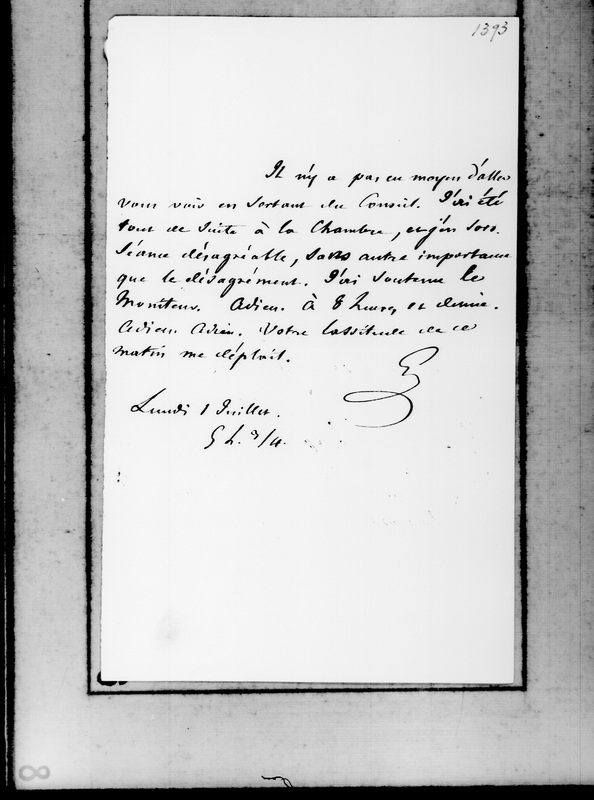 1393
Il n'y a pas eu moyen d'aller
vous voir en sortant du Conseil. J'ai été
tout de suite à la Chambre, et j'en sors.
Séance désagréable, sans autre importance
que le désagrément. J'ai soutenu le
Moniteur. Adieu. à 8 heures et demie.
Adieu. Adieu. Votre lassitude de ce
matin me déplait.
G
Lundi 1 Juillet.
5 h. 3/4.